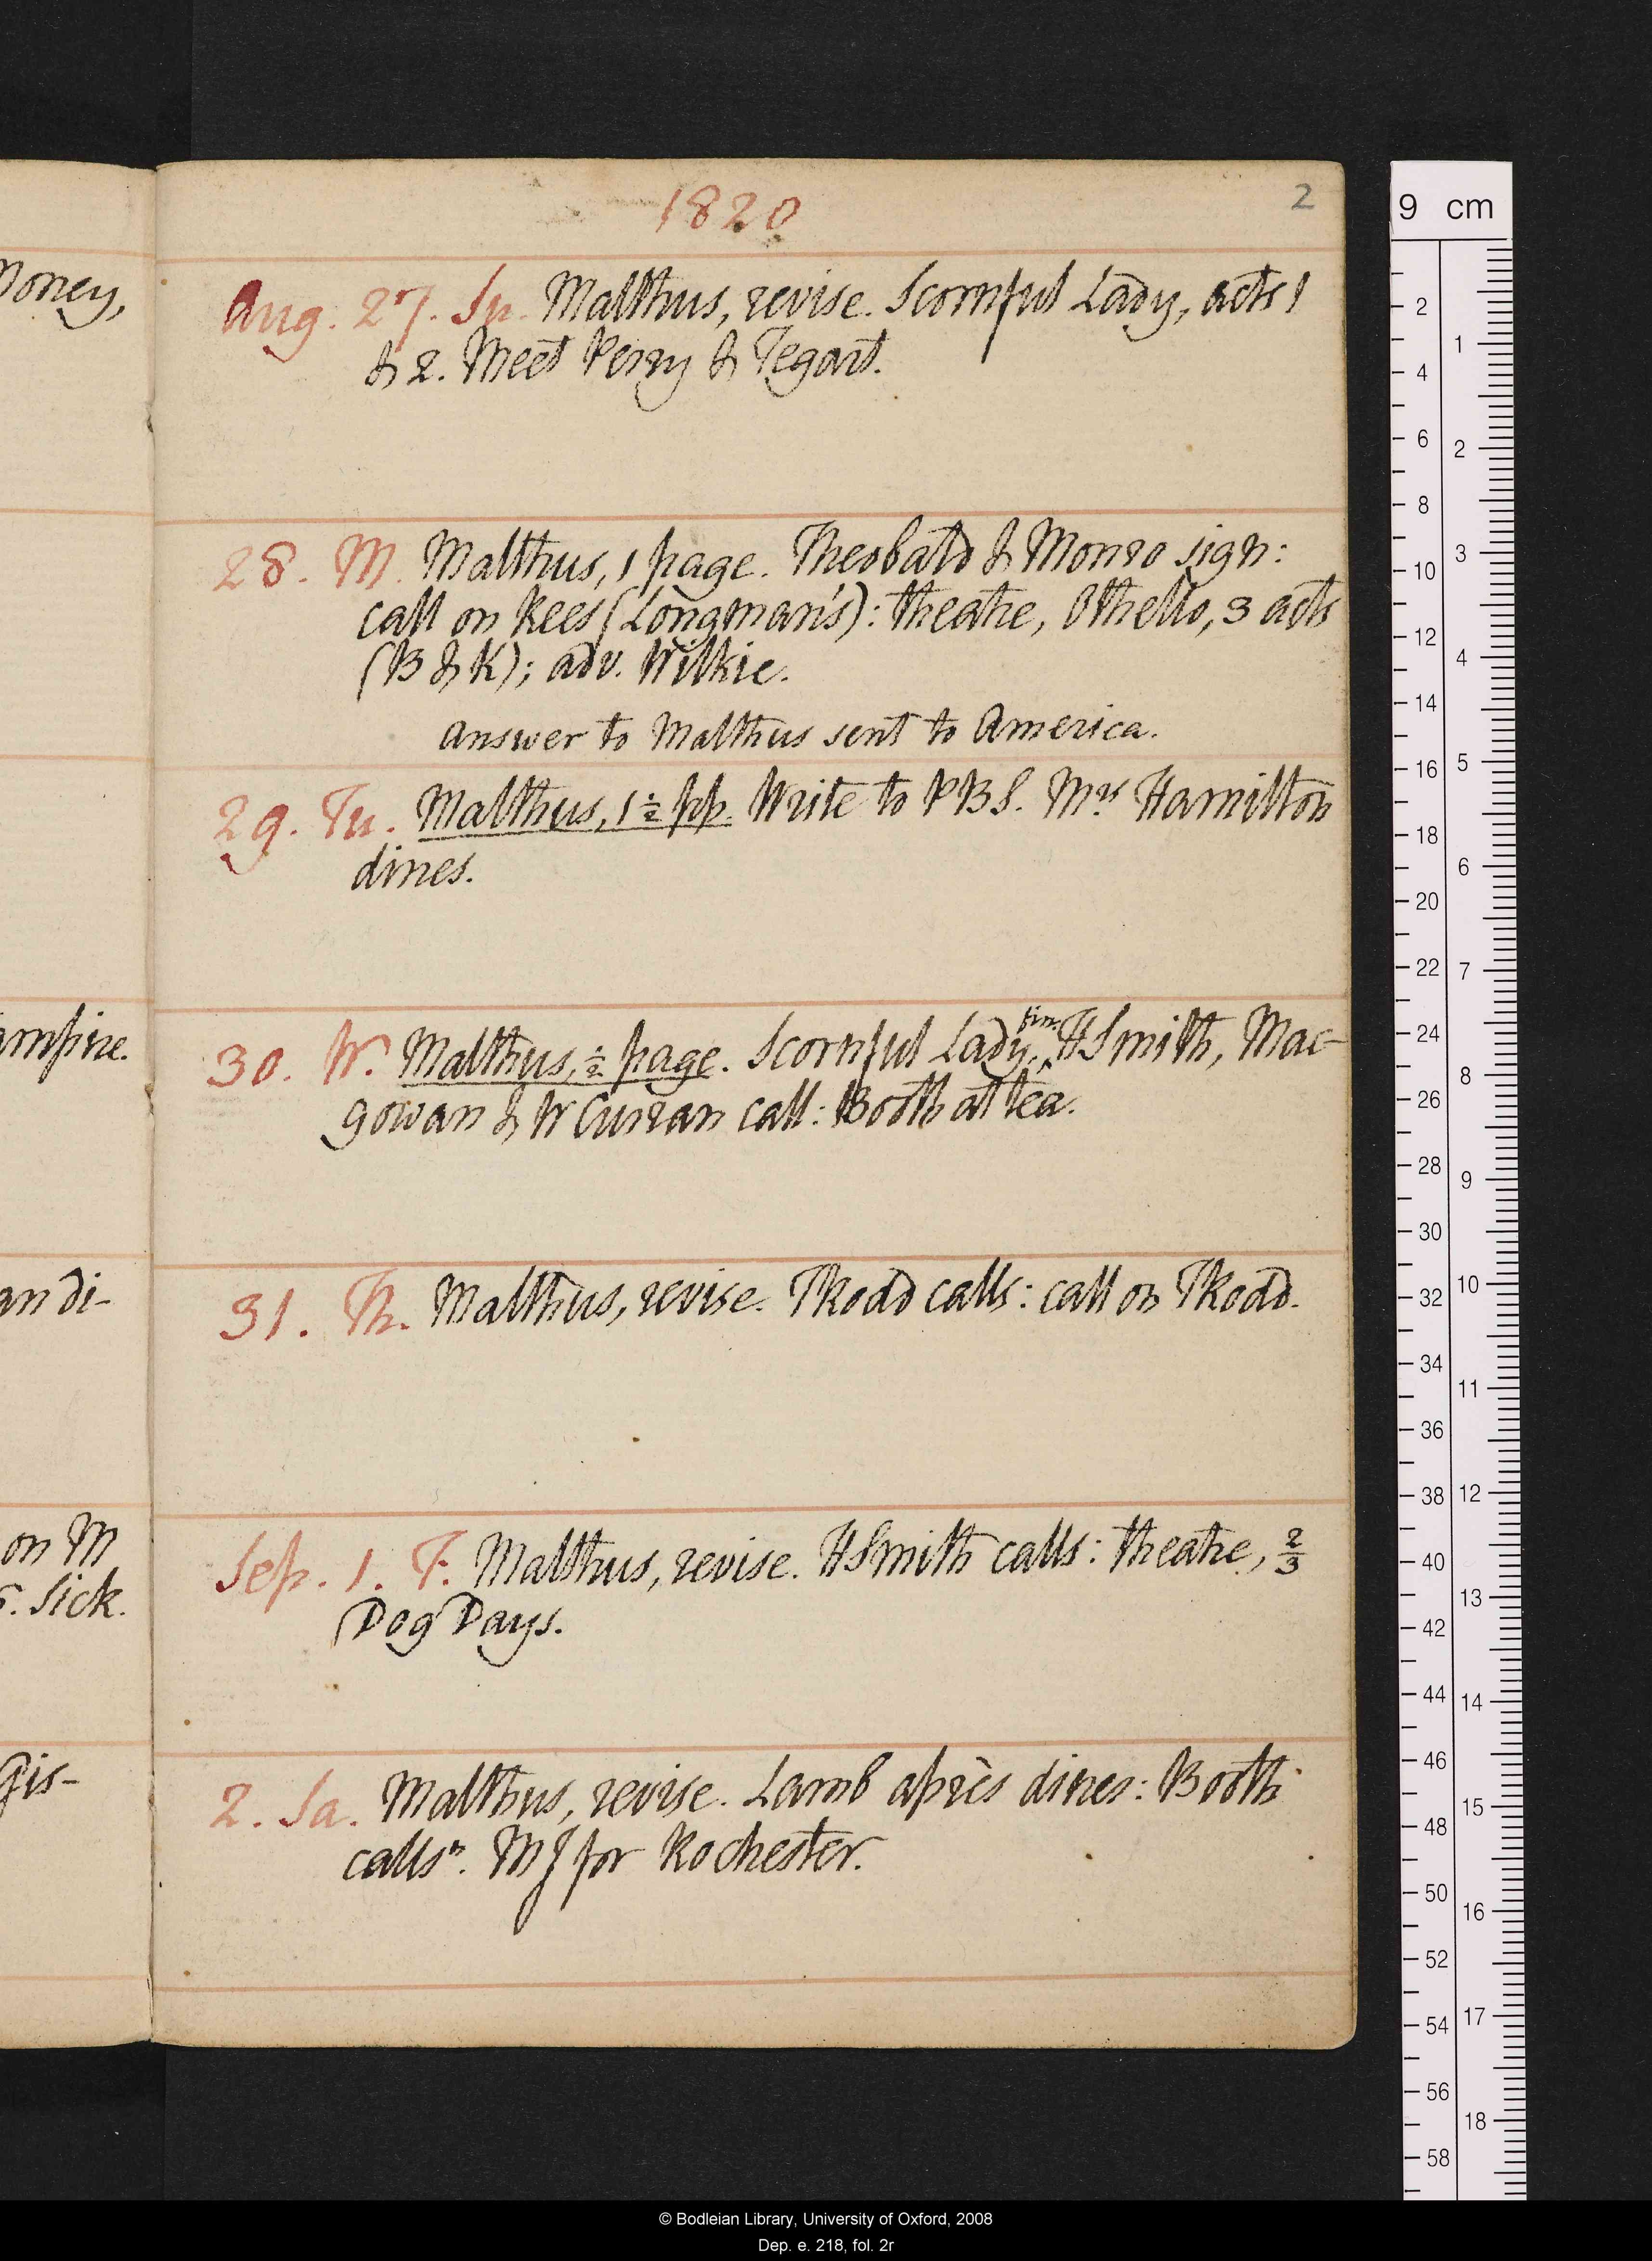 1820
2
Aug. 27. Su. Malthus, revise. Scornful Lady, acts 1
& 2. Meet Perry & Tegart.
28. M. Malthus, 1 page. Theobald & Monro sign:
call on Rees (Longman's): theatre, Othello, 3 acts
(B & K); adv. Wilkie.
Answer to Malthus sent to America.
29. Tu. Malthus, 1 1/2 pp. Write to PBS. Mrs Hamilton
dines.
30. W. Malthus, 1/2 page. Scornful Lady, fin. HSmith, Mac-
gowan & W Curran call: Booth at tea.
31. Th. Malthus, revise. TRodd calls: call on TRodd.
Sep. 1. F. Malthus, revise. HSmith calls: theatre, 2/3
Dog Days.
2. Sa. Malthus, revise. Lamb après dines: Booth
callsn. MJ for Rochester.
Money,
ampire.
an di-
on M
s. sick.
gis-
9 cm
2 4 6 8 10 12 14 16 18 20 22 24 26 28 30 32 34 36 38 40 42 44 46 48 50 52 54 56 58
1 2 3 4 5 6 7 8 9 10 11 12 13 14 15 16 17 18
© Bodleian Library, University of Oxford, 2008
Dep. e. 218, fol. 2r